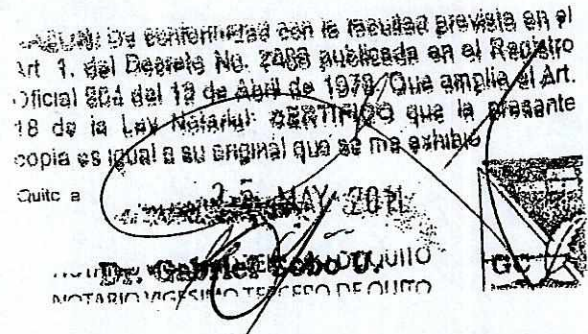 RAZON: De conformidad con la facultad prevista en el
Art 1. del Decreto No. 2483 publicada en el Registro
Oficial 564 del 12 de Abril de 1978, Que amplia el Art.
18 de la Ley Notarial CERTIFICO que la presente
copia es igual a su original que se me exhibio
Quito a
25 MAY 2011
Dr. Gabriel Cobo U.
GC
NOTARIO VIGESIMO TERCERO DE QUITO